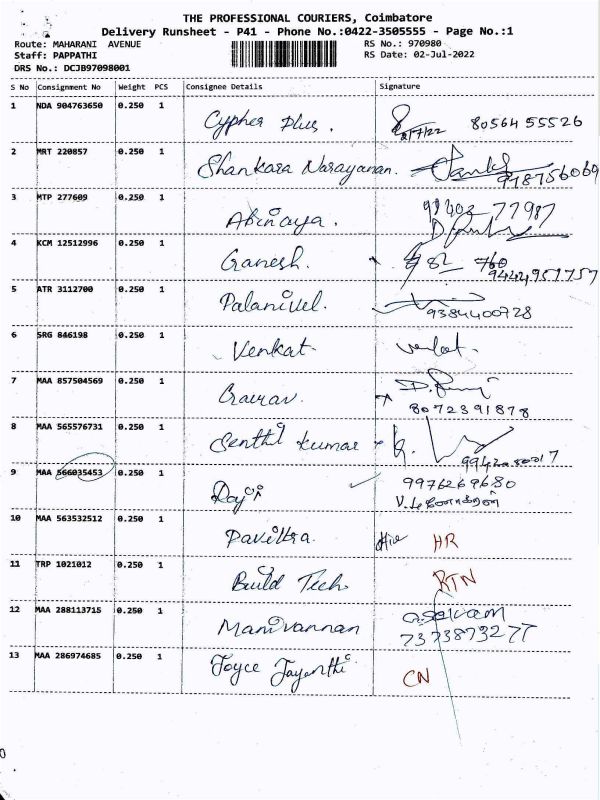 THE PROFESSIONAL COURIERS, Coimbatore
Delivery Runsheet - P41 - Phone No.:0422-3505555 - Page No.:1
Route: MAHARANI AVENUE
RS No.: 970980
Staff: PAPPATHI
RS Date: 02-Jul-2022
DRS No.: DCJB97098001
S No Consignment No Weight PCS Consignee Details Signature
1 NDA 904763650 0.250 1 Cypher Plus. 2/7/22 8056455526
2 MRT 220857 0.250 1 Shankara Narayanan.
978756069
3 MTP 277609 0.250 1 Abinaya. 77987
4 KCM 12512996 0.250 1 Ganesh.
9442951757
5 ATR 3112700 0.250 1 Palanivel.
9384400728
6 SRG 846198 0.250 1 Venkat. venkat.
7 MAA 857504569 0.250 1 Gaurav.
8072391878
8 MAA 565576731 0.250 1 Senthil Kumar
9 MAA 566035453 0.250 1 Raji 9976269680
10 MAA 563532512 0.250 1 Pavithra. HR
11 TRP 1021012 0.250 1 Build Tech RTN
12 MAA 288113715 0.250 1 Manivannan a.selvam
7373873277
13 MAA 286974685 0.250 1 Joyce Jayanthi CN